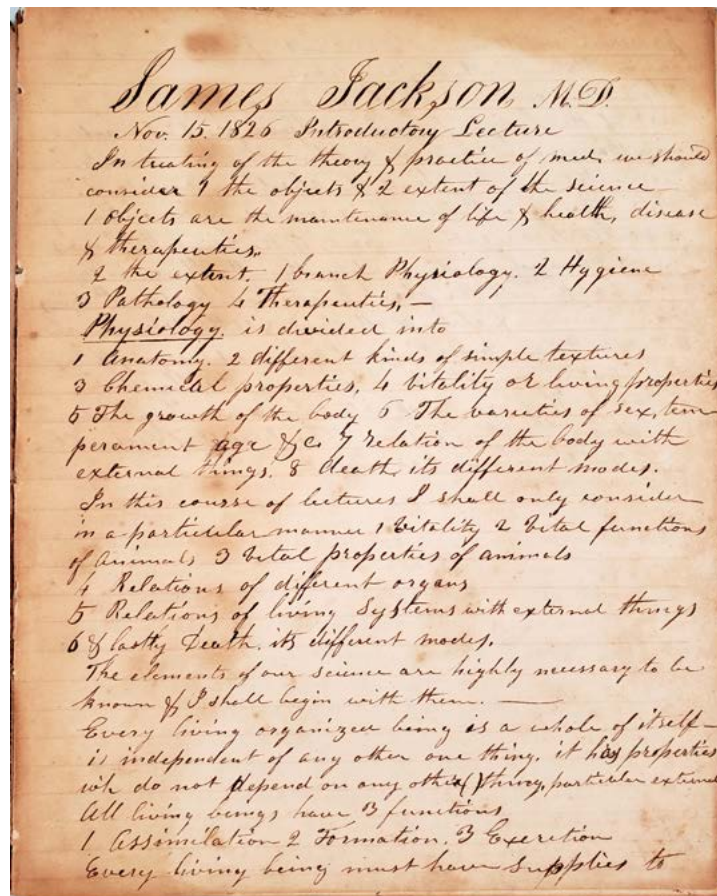 James Jackson M.D.
Nov. 15. 1826 Introductory Lecture
In treating of the theory & practice of med. we should
consider 1 the objects & 2 extent of the science
1 Objects are the maintenance of life & health, disease
& therapeutics,,
2 the extent. 1 branch Physiology. 2 Hygiene
3 Pathology 4 Therapeutics, —
Physiology. is divided into
1 Anatomy. 2 different kinds of simple textures
3 Chemical properties, 4 vitality or living properties
5 The growth of the body 6 The varieties of sex, tem
perament age &c. 7 relation of the body with
external things. 8 death, its different modes.
In this course of lectures I shall only consider
in a particular manner 1 Vitality 2 Vital functions
of animals 3 Vital properties of animals
4 Relations of different organs
5 Relations of living Systems with external things
6 & lastly Death. its different modes.
The elements of our science are highly necessary to be
known & I shall begin with them. —
Every living organized being is a whole of itself —
is independent of any other one thing. it has properties
wh do not depend on any other () thing, particular external
All living beings have 3 functions
1 Assimilation 2 Formation. 3 Excretion
Every living being must have supplies to